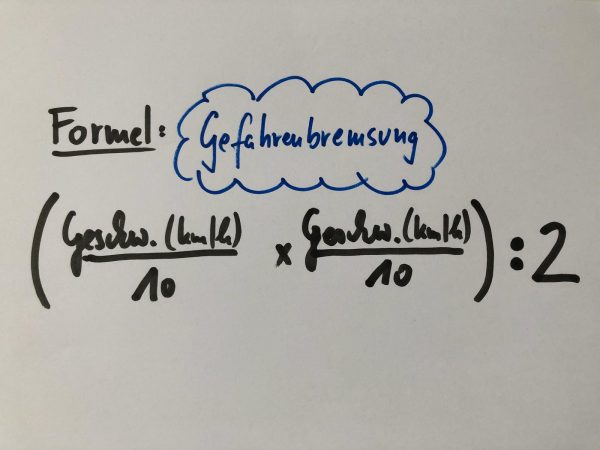 Formel: Gefahrenbremsung
(Geschw. (km/h)/10 x Geschw. (km/h)/10) : 2